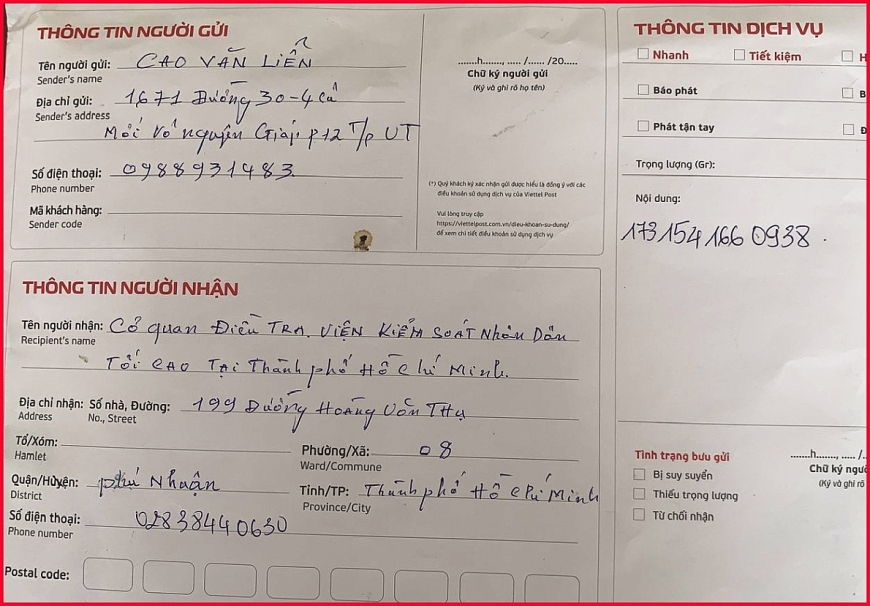 THÔNG TIN NGƯỜI GỬI
Tên người gửi: CAO VĂN LIỂN
Sender's name
Địa chỉ gửi: 1671 Đường 30-4 cũ
Sender's address
Mới Võ nguyên Giáp. P12 T/p VT
Số điện thoại: 0988931483
Phone number
Mã khách hàng:
Sender code
........h........, ..... /...... /20.....
Chữ ký người gửi
(Ký và ghi rõ họ tên)
(*) Quý khách ký xác nhận gửi được hiểu là đồng ý với các
điều khoản sử dụng dịch vụ của Viettel Post
Vui lòng truy cập
https://viettelpost.com.vn/dieu-khoan-su-dung/
để xem chi tiết điều khoản sử dụng dịch vụ
THÔNG TIN DỊCH VỤ
Nhanh
Tiết kiệm
H
Báo phát
B
Phát tận tay
Đ
Trọng lượng (Gr):
Nội dung:
173154166 0938.
THÔNG TIN NGƯỜI NHẬN
Tên người nhận: Cơ quan Điều TRA. VIỆN KIỂM SOÁT Nhân Dân
Recipient's name
TỐI CAO TẠI Thành phố Hồ Chí Minh.
Địa chỉ nhận: Số nhà, Đường: 199 Đường Hoàng Văn Thụ
Address No., Street
Tổ/Xóm:
Hamlet
Phường/Xã: 08
Ward/Commune
Quận/Huyện: phú Nhuận
District
Tỉnh/TP: Thành phố Hồ Chí Minh
Province/City
Số điện thoại: 02838440630
Phone number
Postal code:
Tình trạng bưu gửi
Bị suy suyển
Thiếu trọng lượng
Từ chối nhận
........h........, ..... /..
Chữ ký ngườ
(Ký và ghi rõ